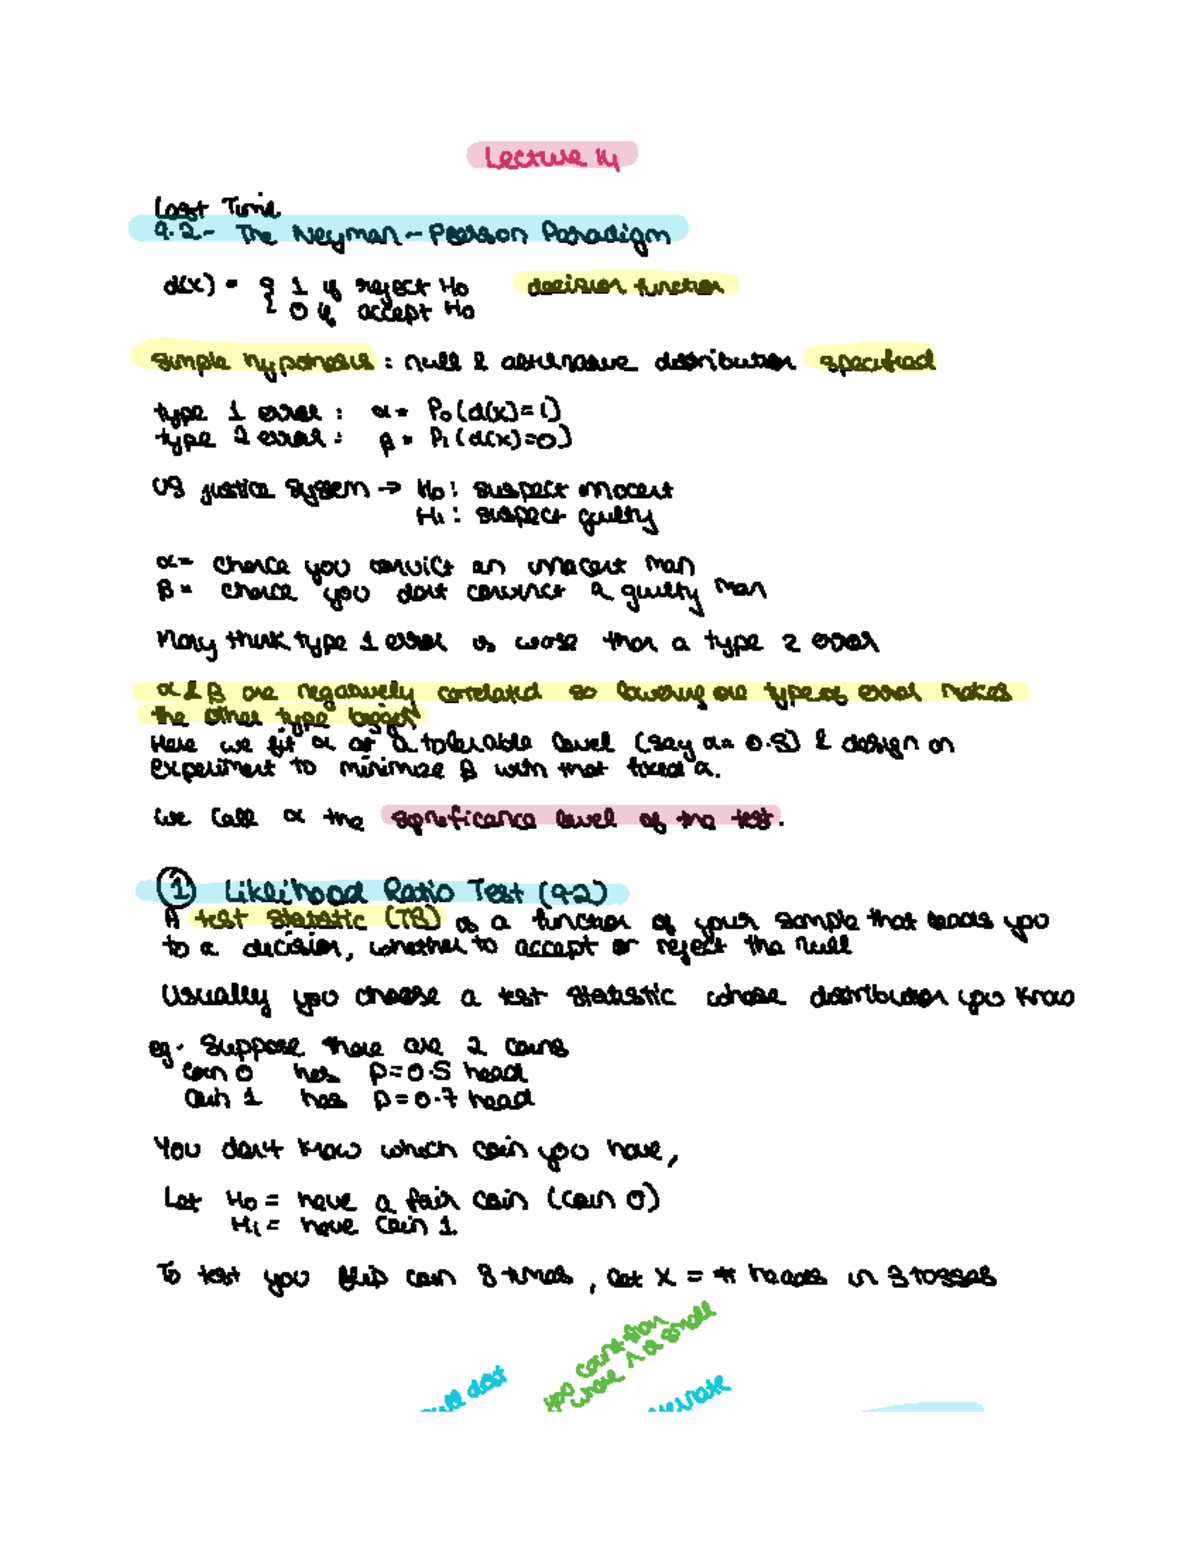 Lecture 14
Last Time
9.2 - The Neyman-Pearson Paradigm
d(x) = { 1 if reject H0 decision function
{ 0 if accept H0
simple hypothesis : null & alternative distribution specified
type 1 error : α = P0(d(x)=1)
type 2 error : β = P1(d(x)=0)
US justice system → H0: suspect innocent
H1: suspect guilty
α = chance you convict an innocent man
β = chance you don't convict a guilty man
Many think type 1 error is worse than a type 2 error
α & β are negatively correlated so lowering one type of error makes
the other type bigger
Here we fix α at a tolerable level (say α = 0.5) & design an
experiment to minimize β with that fixed α.
We call α the significance level of the test.
① Liklihood Ratio Test (9.2)
A test statistic (TS) is a function of your sample that leads you
to a decision, whether to accept or reject the null
Usually you choose a test statistic whose distribution you know
eg. Suppose there are 2 coins
coin 0 has p=0.5 head
coin 1 has p=0.7 head
You don't know which coin you have,
Let H0 = have a fair coin (coin 0)
H1 = have coin 1.
To test you flip coin 8 times, let X = # heads in 8 tosses
you count from
where 1 α small
null dist